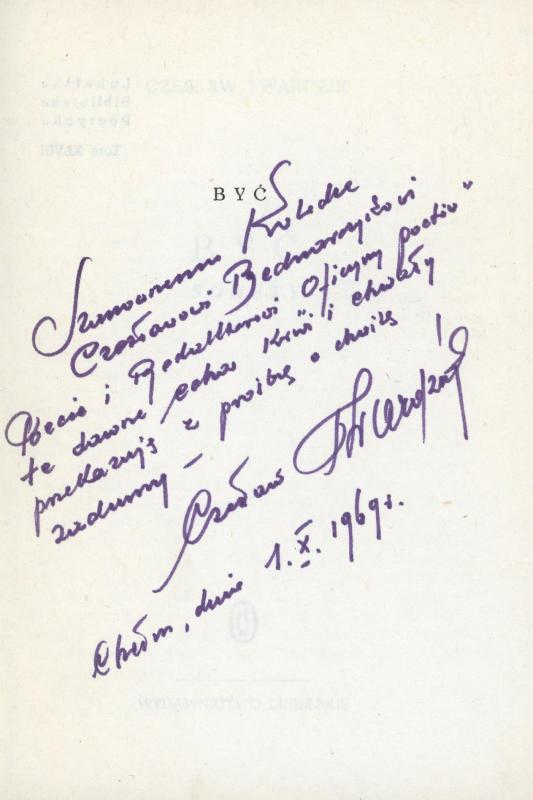 CZESŁAW TWARDZIK
Lubelska
Biblioteka
Poetycka
Tom XLVIII
BYĆ
Szanownemu Koledze
Czesławowi Bednarczykowi
Poecie i Redaktorowi Oficyny poetów"
te dawne echa krwi i chwały
przekazuję z prośbą o chwilę
zadumy –
Czesław Twardzik
Chełm, dnia 1.X.1969 r.
WYDAWNICTWO LUBELSKIE